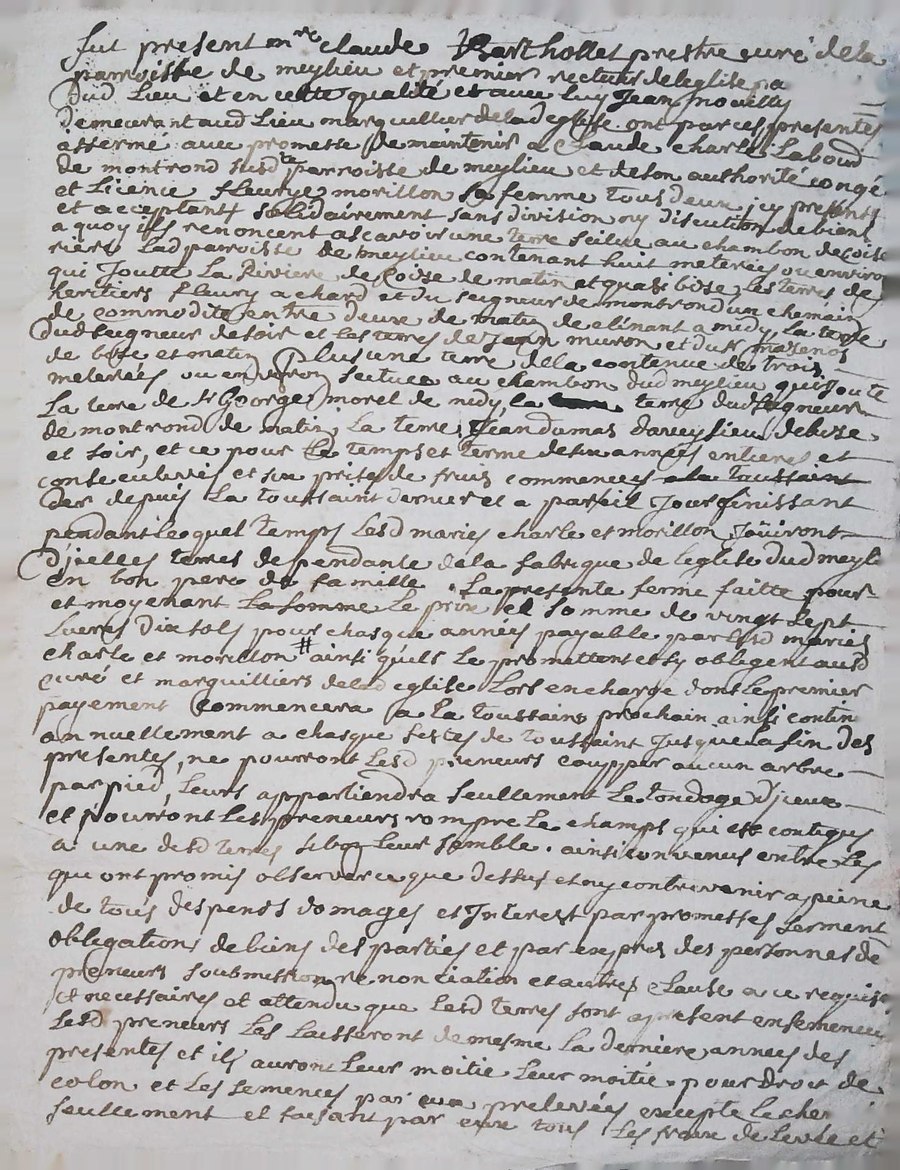 fut present mre claude Barthollet prestre curé de la
parroisse de meylieu et premier recteur de leglise
dud Lieu et en cette qualité et avec luy Jean
demeurant aud Lieu marguillier de lad eglise ont par ces presentes
affermé avec promesse de maintenir a Claude charle Laboud
de montrond susd parroisse de meylieu et de son authorité congé
et Licence fleurye morillon sa femme tous deux icy presents
et acceptant solidairement sans division ny discution de bien
a quoy ils renoncent ascavoir une terre scitue au chambon de coise
riere Lad parroisse de meylieu contenant huit meterés ou environ
qui Joutte La Riviere de Coize de matin et quasi bize, les terres de
heritiers fleury achard et du seigneur de montrond un chemain
de commodité entre deux de matin declinant a midy La terre
dud seigneur de soir et les terres de Jean muron et du sr mazenod
de bize et matin Plus une terre de la contenue de trois
meterées ou environ scituee au chambon dud meylieu qui Joute
La terre de sr George morel de midy, la terre dud seigneur
de montrond de matin, La terre Jean dumas daveyzieu de bize
et soir, et ce pour Le temps et terme de six années entieres et
consecutives et six prises de fruis commencees a la toussaint
des depuis La toussaint dernier et a pareil Jour finissant
pendant Lequel temps Lesd maries charle et morillon Joüiront
dicelles terres dependante de la fabrique de leglise dud meyli
en bon pere de famille. La presente ferme faitte pour
et moyenant La somme Le prix et somme de vingt sept
Livres dix sols pour chasque années payable par Lesd mariés
charle et morillon # ainsi quils Le promettent et sy obligent ausd
curé et marguilliers de lad eglise Lors en charge dont Le premier
payement commencera a La toussains prochain ainsi contin
annuellement a chasque festes de toussaint Jusque La fin des
presentes, ne pourront Lesd preneurs coupper aucun arbre
par pied, Leurs appartiendra seullement Le tondage diceux
et pourront Les preneurs rompre Le champs qui est contigus
a une desd terres si bon Leur semble. ainsi convenus entre Les
qui ont promis observer ce que dessus et ny contrevenir a peine
de tous despends domages et Interest par promesses serment
obligations de biens des parties et par expres des personnes de
preneurs soubmission renonciation et autres clause a ce requise
et necessaires et attendu que Lesd terres sont apresent ensemencee
Lesd preneurs Les Laisseront de mesme La derniere annees des
presentes et ils auront Leur moitie Leur moitié pour droit de
colon et Les semences par eux prelevées excepte
seullement et faisant par eux tous Les fraix de Levée et